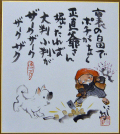 裏の畠で
ポチがなく
正直爺さん
掘ったれば
大判小判が
ザクザク
ザクザク